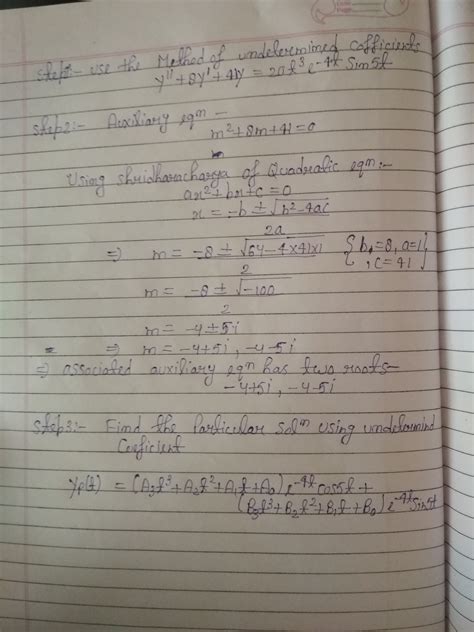 Step1:- Use the Method of undetermined cofficients
y'' + 8y' + 41y = 20t³ e^-4t Sin5t
Step2:- Auxiliary eqn -
m² + 8m + 41 = 0
Using Shridharacharya of Quadratic eqn:-
ax² + bx + c = 0
x = -b ± √b² - 4ac / 2a
⇒ m = -8 ± √64 - 4×41×1 / 2 {b = 8, a = 1, c = 41}
m = -8 ± √-100 / 2
m = -4 ± 5i
⇒ m = -4+5i, -4-5i
⇒ associated auxiliary eqn has two roots-
-4+5i, -4-5i
Step3:- Find the Particular Soln using undetermind
Coeficient
Yp(t) = (A₃t³ + A₂t² + A₁t + A₀) e^-4t cos5t +
(B₃t³ + B₂t² + B₁t + B₀) e^-4t Sin5t